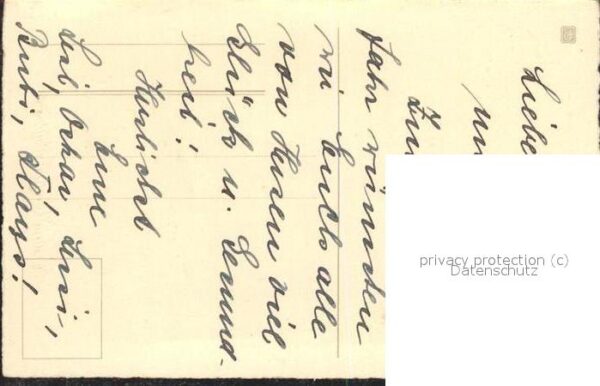 Liebe
un
Zum
Jahr wünschen
wir Euch alle
von Herzen viel
Glück u. Gesund-
heit!
Herzlichst
Eure
Oskar, Lisi,
Bubi,
privacy protection (c)
Datenschutz